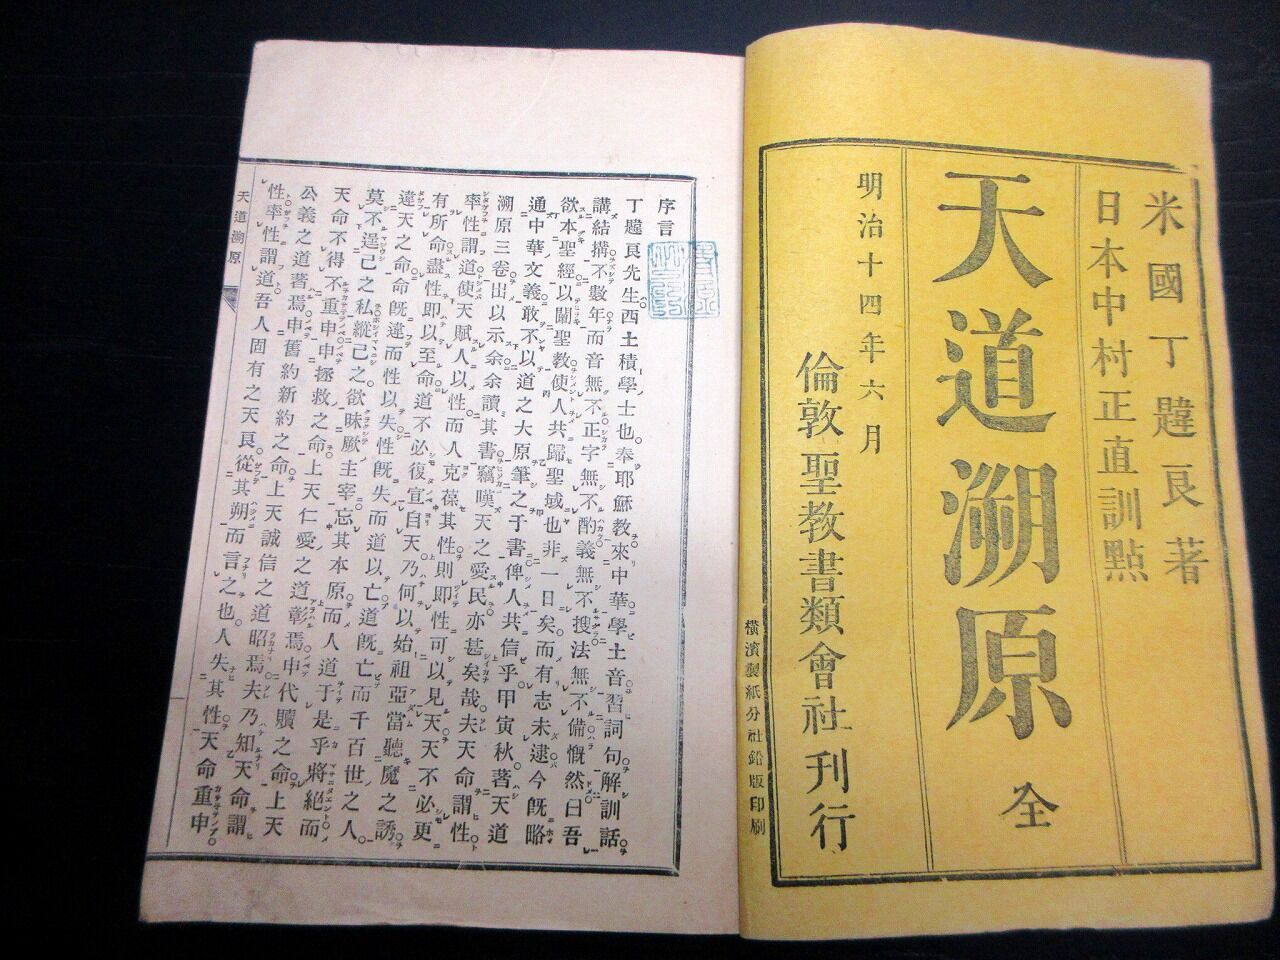 米國丁韙良著
日本中村正直訓點
天道溯原 全
明治十四年六月
倫敦聖教書類會社刊行
橫濱製紙分社鉛版印刷
序言
丁韙良先生西土積學士也。奉耶穌教來中華學土音習詞句解訓話
講結搆不數年而音無不正字無不酌義無不搜法無不備慨然曰吾
欲本聖經以闡聖教使人共歸聖域也非一日矣而有志未逮今旣略
通中華文義敢不以道之大原筆之于書俾人共信乎甲寅秋。著天道
溯原三卷出以示余余讀其書竊嘆天之愛民亦甚矣哉夫天命謂性
率性謂道使天賦人以性而人克葆其性則即性可以見天天不必更
有所命盡性即以至命道不必復宣自天。乃何以始祖亞當聽魔之誘
違天之命命旣違而性以失性旣失而道以亡道旣亡而千百世之人。
莫不逞己之私。縱己之欲昧厥主宰。忘其本原而人道于是乎將絕而
天命不得不重申申拯救之命上天仁愛之道彰焉申代贖之命上天
公義之道著焉申舊約新約之命上天誠信之道昭焉夫乃知天命謂
性率性謂道吾人固有之天良。從其朔而言之也。人失其性天命重申。
天道溯原